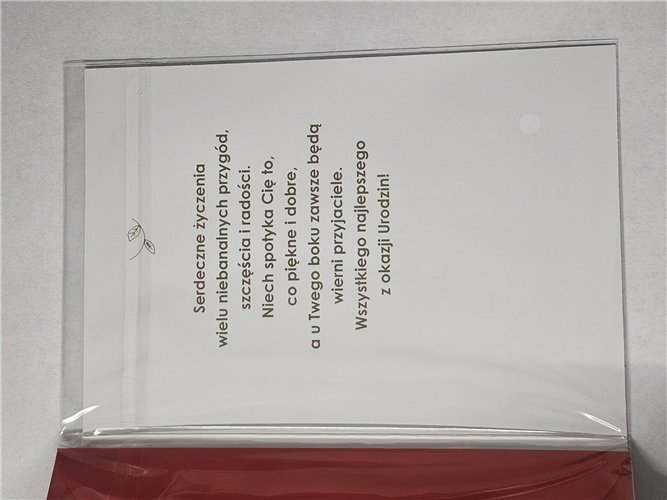 Serdeczne życzenia
wielu niebanalnych przygód,
szczęścia i radości.
Niech spotyka Cię to,
co piękne i dobre,
a u Twego boku zawsze będą
wierni przyjaciele.
Wszystkiego najlepszego
z okazji Urodzin!